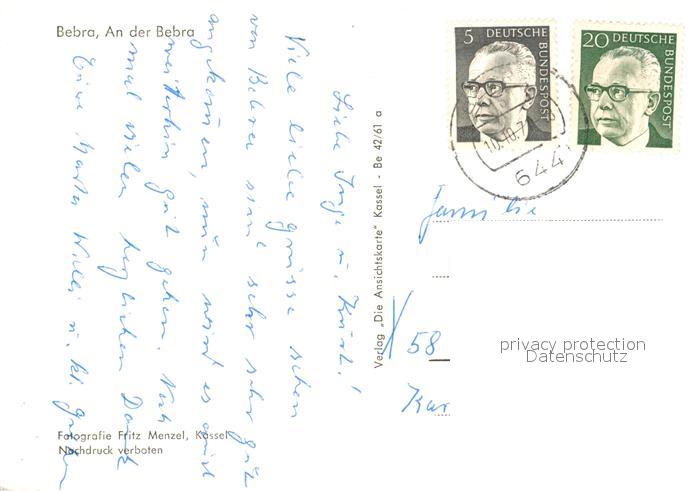 Bebra, An der Bebra
Liebe Inge u. Kurt!
Viele liebe grüsse schon
von Bebra sind sehr sehr gut
angekommen, nun wird es euch
weiterhin gut gehen. Noch
mal vielen herzlichen Dank
Eure Marta Willi u. kl.
Fotografie Fritz Menzel, Kassel
Nachdruck verboten
Verlag „Die Ansichtskarte" Kassel - Be 42/61 a
5 DEUTSCHE
BUNDESPOST
20 DEUTSCHE
BUNDESPOST
644
Familie
58
privacy protection
Datenschutz